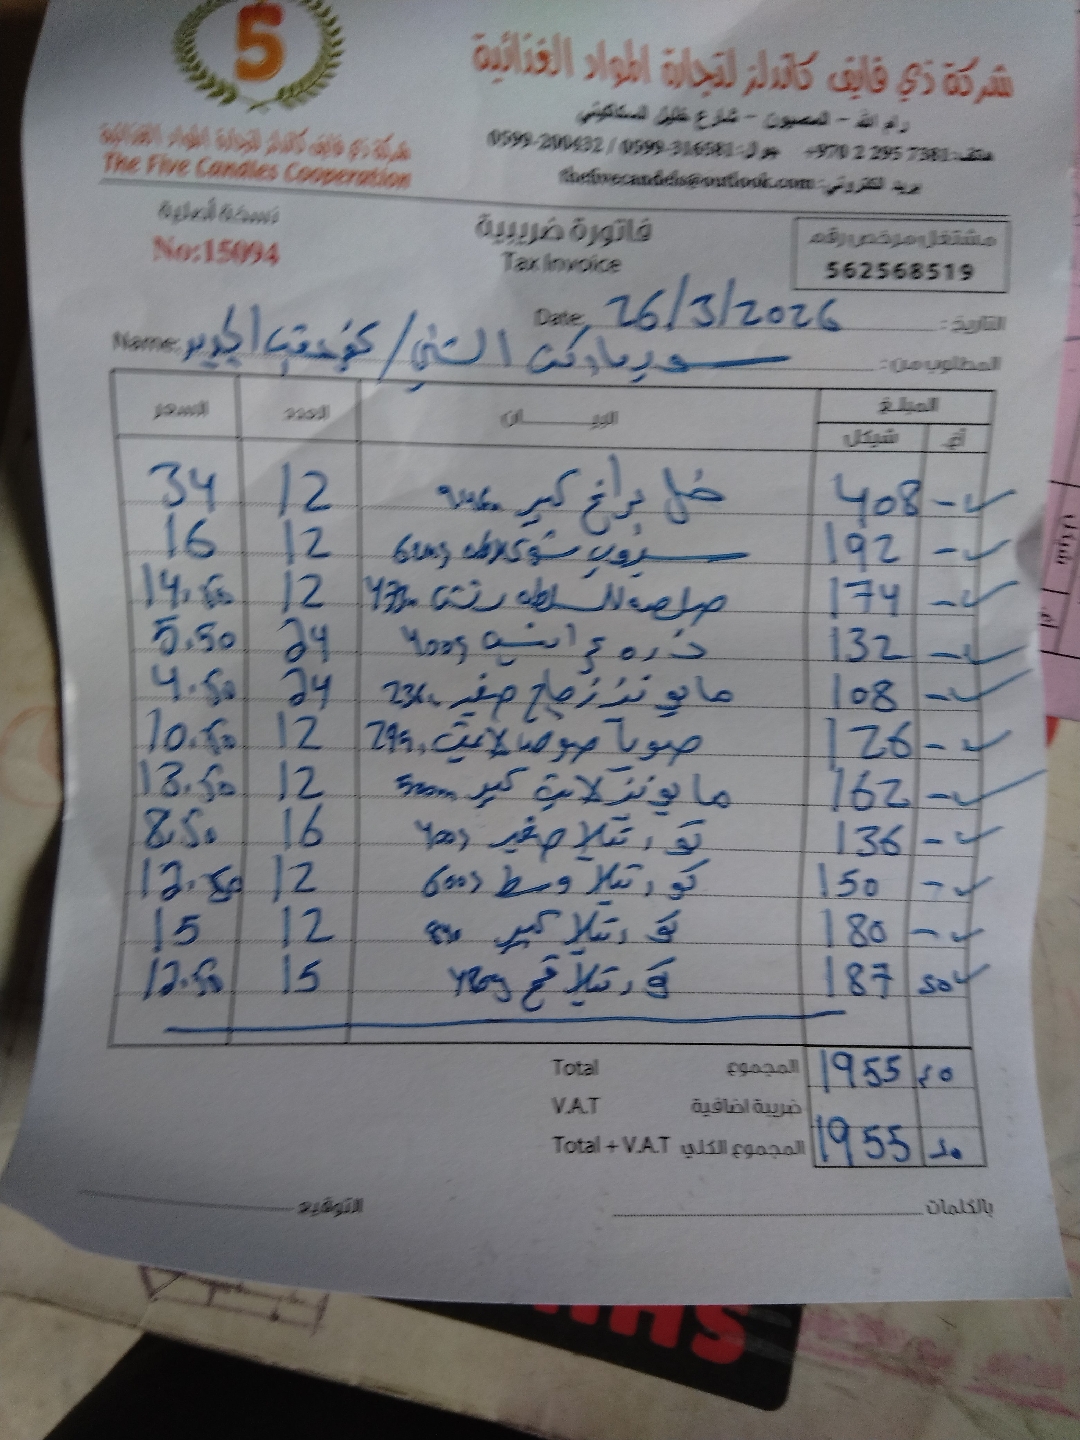 5
شركة ذي فايف كاندلز لتجارة المواد الغذائية
رام الله - المصيون - شارع خليل السكاكيني
هاتف: +970 2 295 7381 جوال: 0599-316581 / 0599-200432
بريد الكتروني: thefivecandels@outlook.com
شركة ذي فايف كاندلز لتجارة المواد الغذائية
The Five Candles Cooperation
نسخة أصلية
No:15094
فاتورة ضريبية
Tax Invoice
مشتغل مرخص رقم
562568519
التاريخ: 26/3/2026 Date:
المطلوب من: سوبرماركت / Name:
المبلغ البيـــــان العدد السعر
أغ. شيكل
- 408 خل كبير 12 34
- 192 سيروب شوكلاطه 600g 12 16
- 174 صلصه للسلطه 12 14.50
- 132 ذره 400g 24 5.50
- 108 مايونيز زجاج صغير 24 4.50
- 126 صويا صوص لايت 12 10.50
- 162 مايونيز لايت كبير 500m 12 13.50
- 136 صغير 400g 16 8.50
- 150 وسط 600g 12 12.50
- 180 كبير 12 15
50 187 قمح 15 12.50
50 1955 المجموع Total
ضريبة اضافية V.A.T
50 1955 المجموع الكلي Total + V.A.T
بالكلمات التوقيع